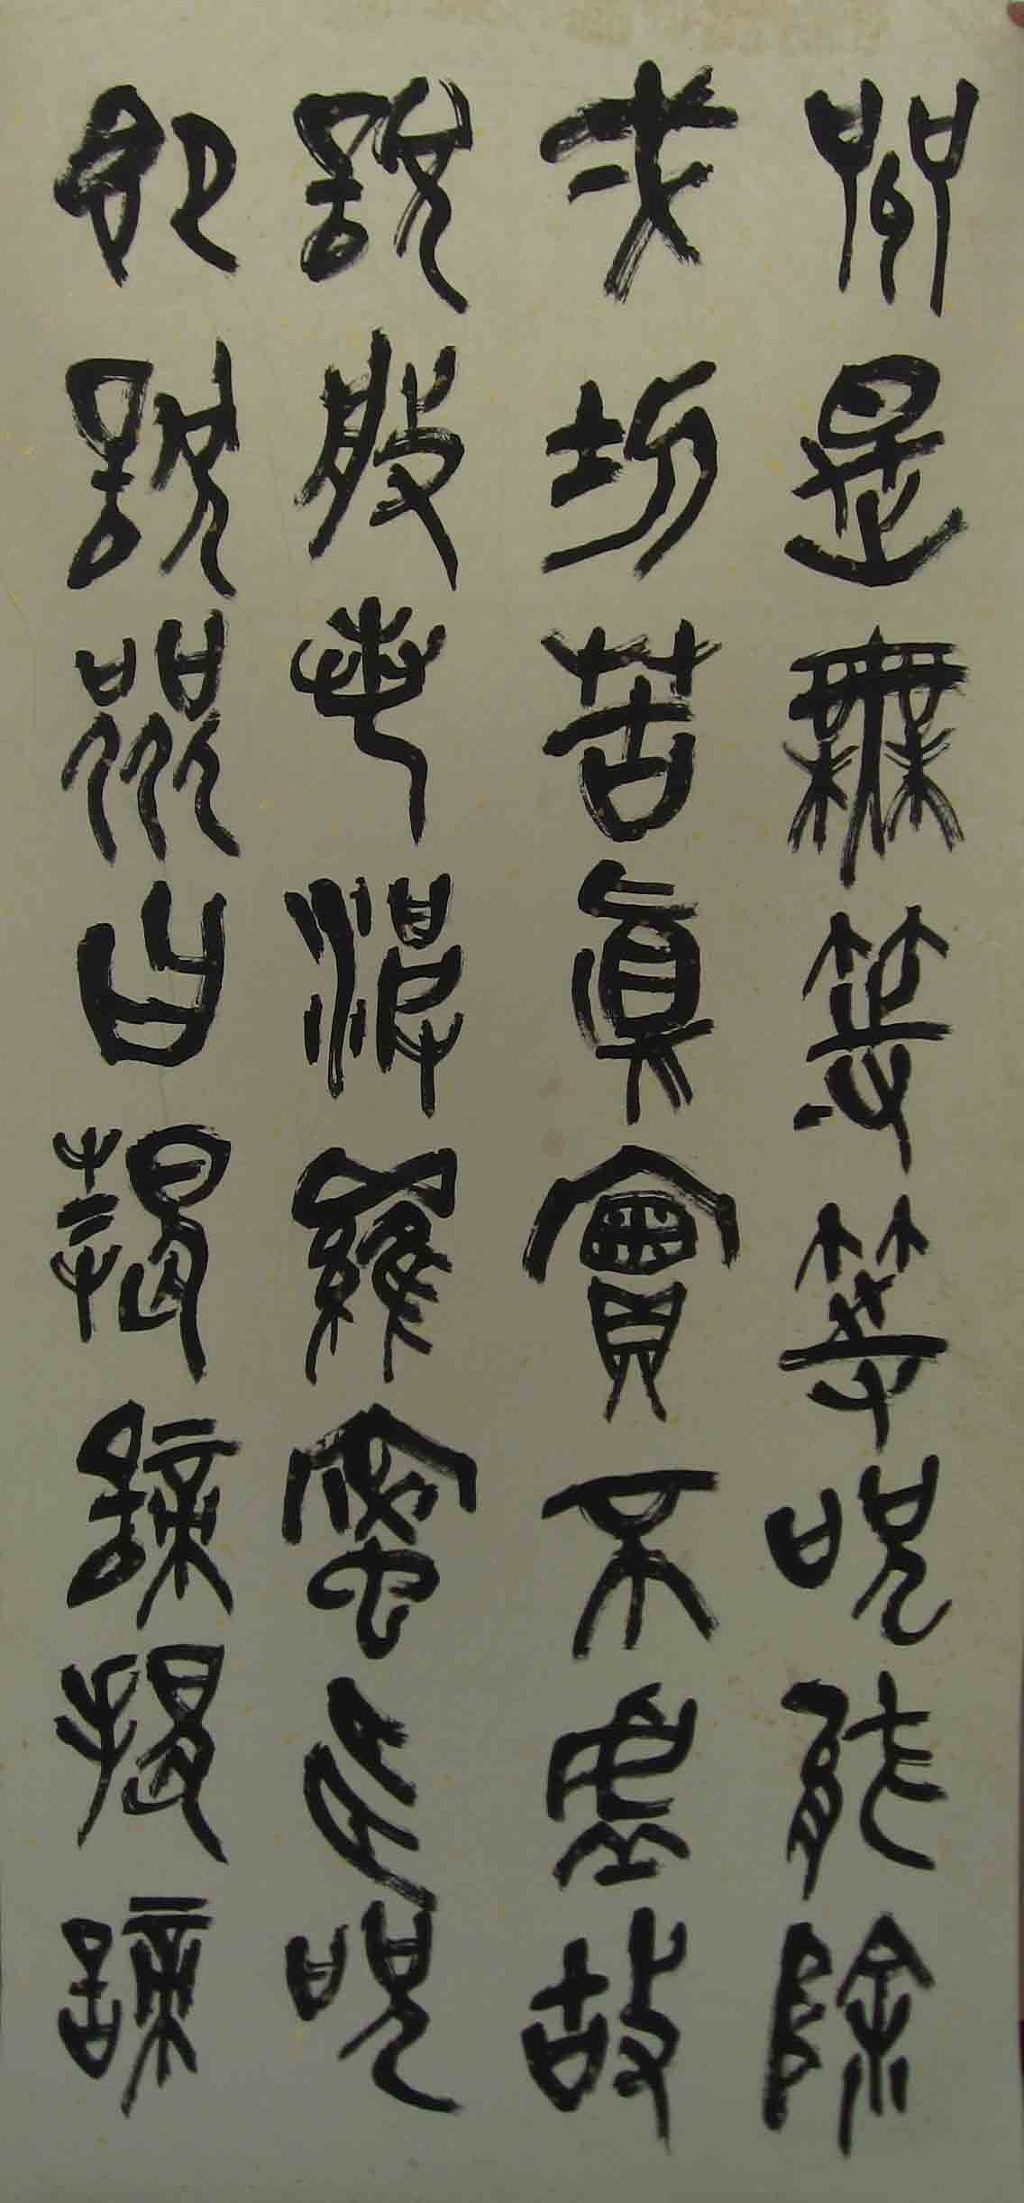 咒是無等等咒能除
弌切苦真實不虛故
說般若波羅蜜多咒
即說咒曰揭諦揭諦